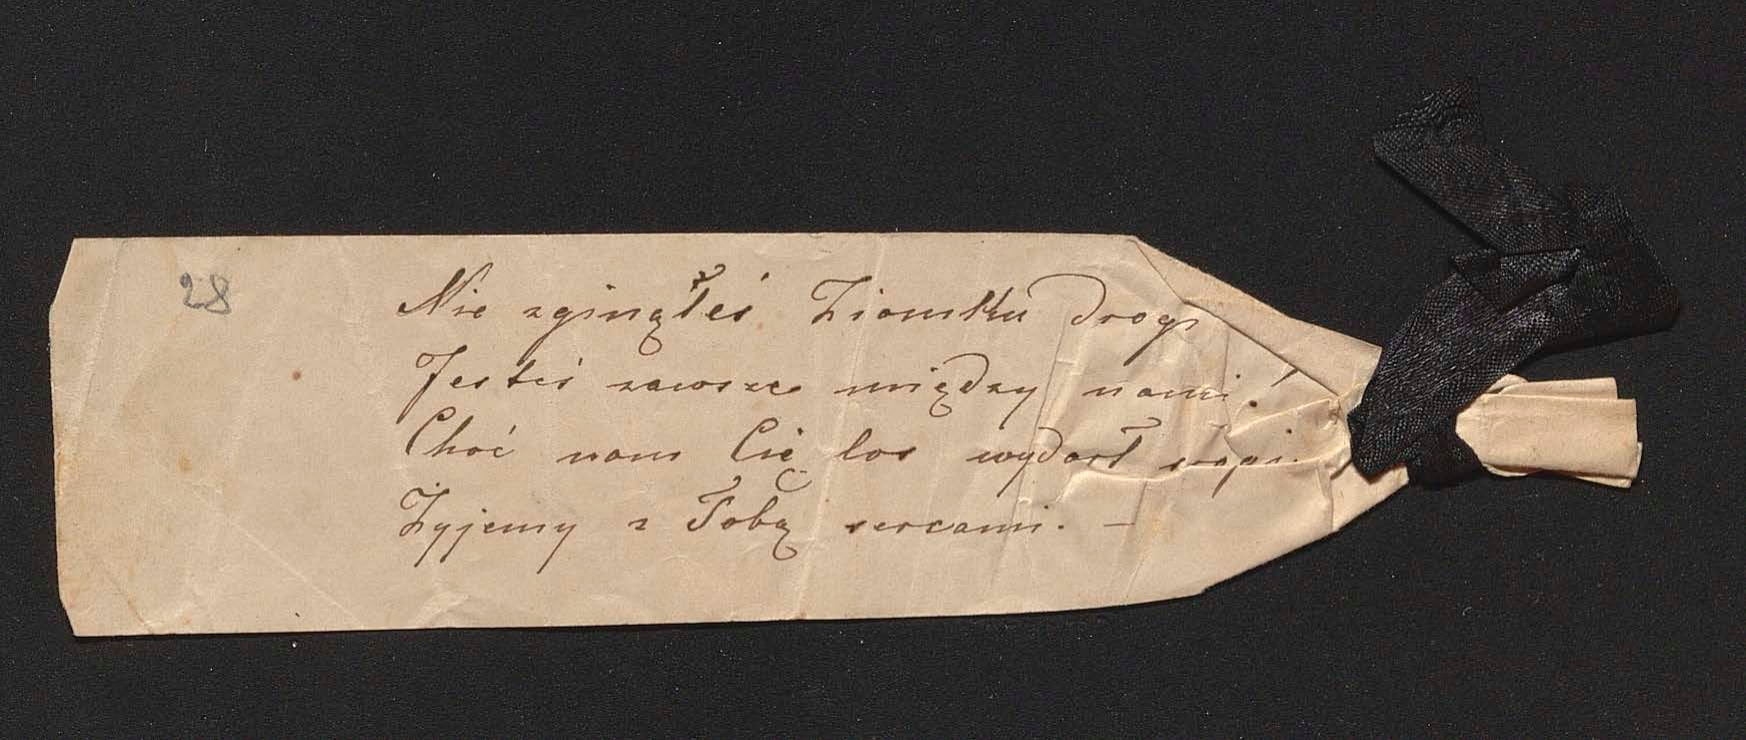 28
Nie zginąłeś Ziomku drogi
Jesteś zawsze między nami!
Choć nam Cię los wydarł srogi.
Żyjemy z Tobą sercami. –